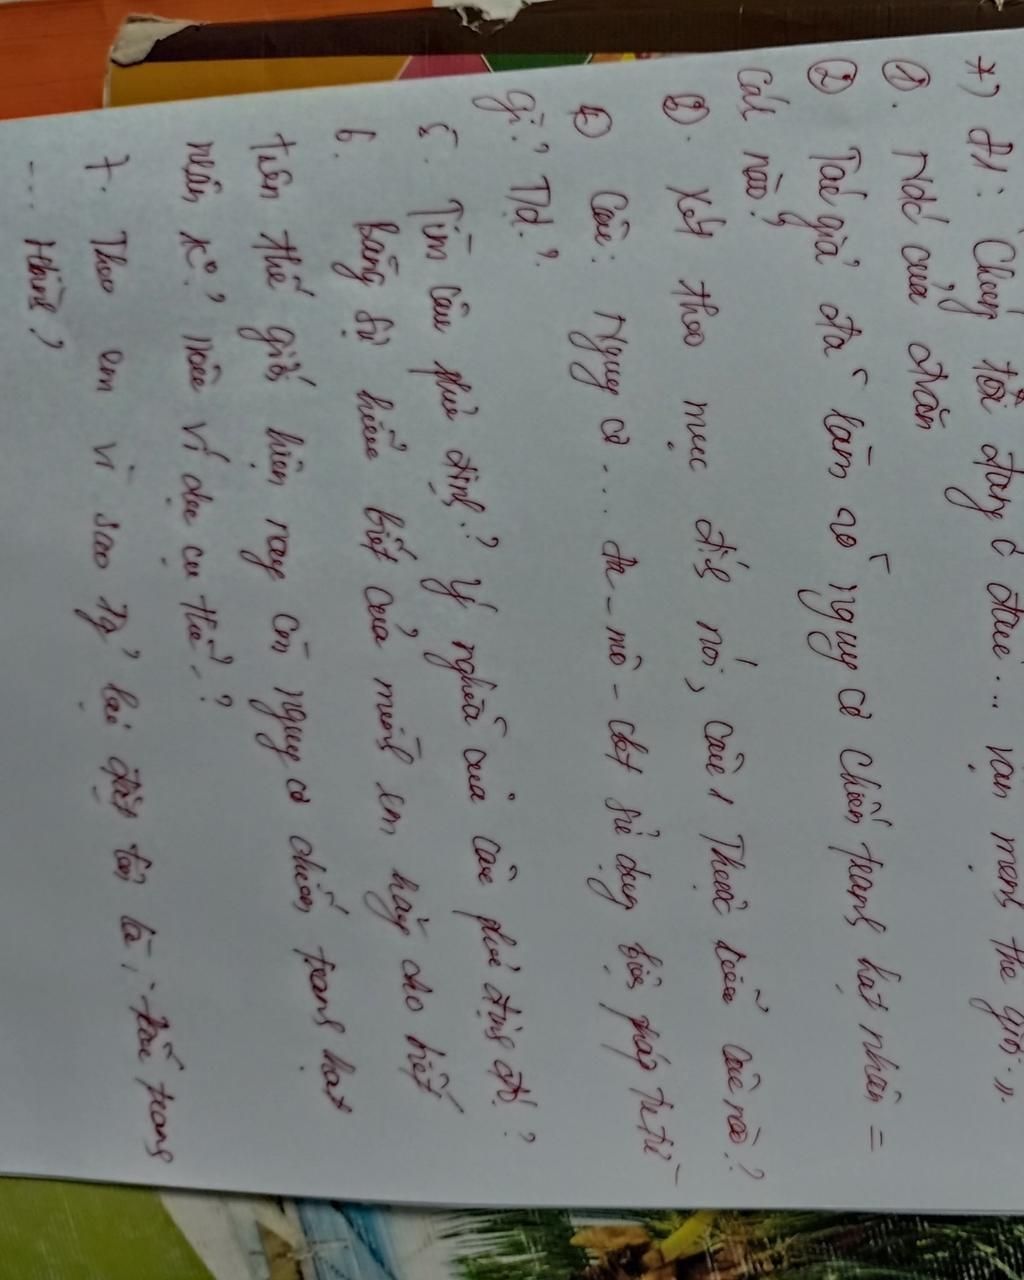 *) Đ1: "Chúng ta đang ở đâu... vận mệnh thế giới".
①. NDC của đoạn
② Tác giả đã làm rõ nguy cơ chiến tranh hạt nhân =
Cách nào?
③. Xét theo mục đích nói, câu 1 Thuộc kiểu câu nào?
④ Câu: Nguy cơ... đa-mô-clét sử dụng biện pháp tu từ
gì? Td?
5. Tìm câu phủ định? Ý nghĩa của câu phủ định đó?
6. Bằng sự hiểu biết của mình em hãy cho biết
trên thế giới hiện nay còn nguy cơ chiến tranh hạt
nhân ko? nêu ví dụ cụ thể?
7. Theo em vì sao tg' lại đặt tên là: Đấu tranh
... Hbình?